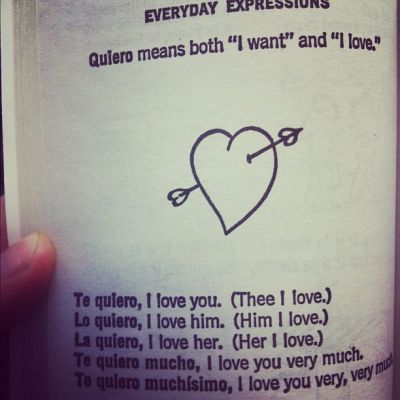 EVERYDAY EXPRESSIONS
Quiero means both "I want" and "I love."
Te quiero, I love you. (Thee I love.)
Lo quiero, I love him. (Him I love.)
La quiero, I love her. (Her I love.)
Te quiero mucho, I love you very much.
Te quiero muchísimo, I love you very, very much.